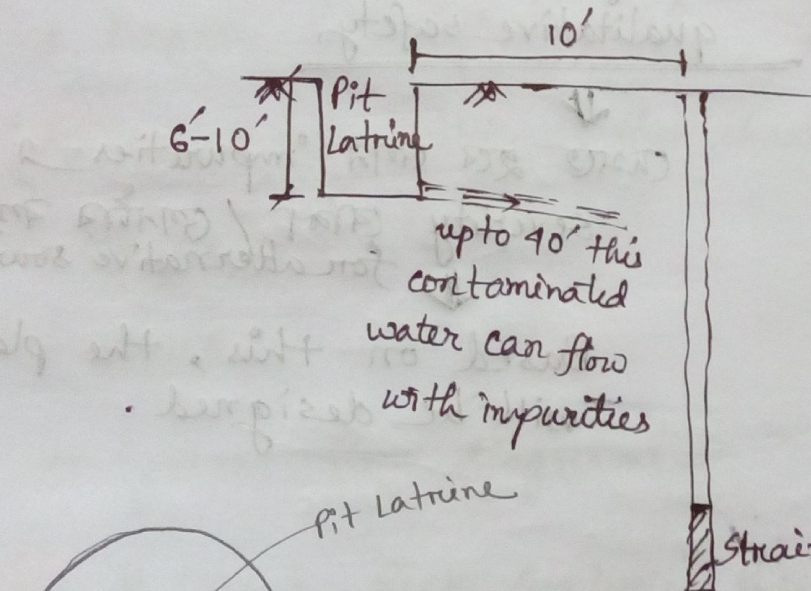 10'
Pit
Latrine
6'-10'
up to 40' this
contaminated
water can flow
with impurities
Pit Latrine
Strai